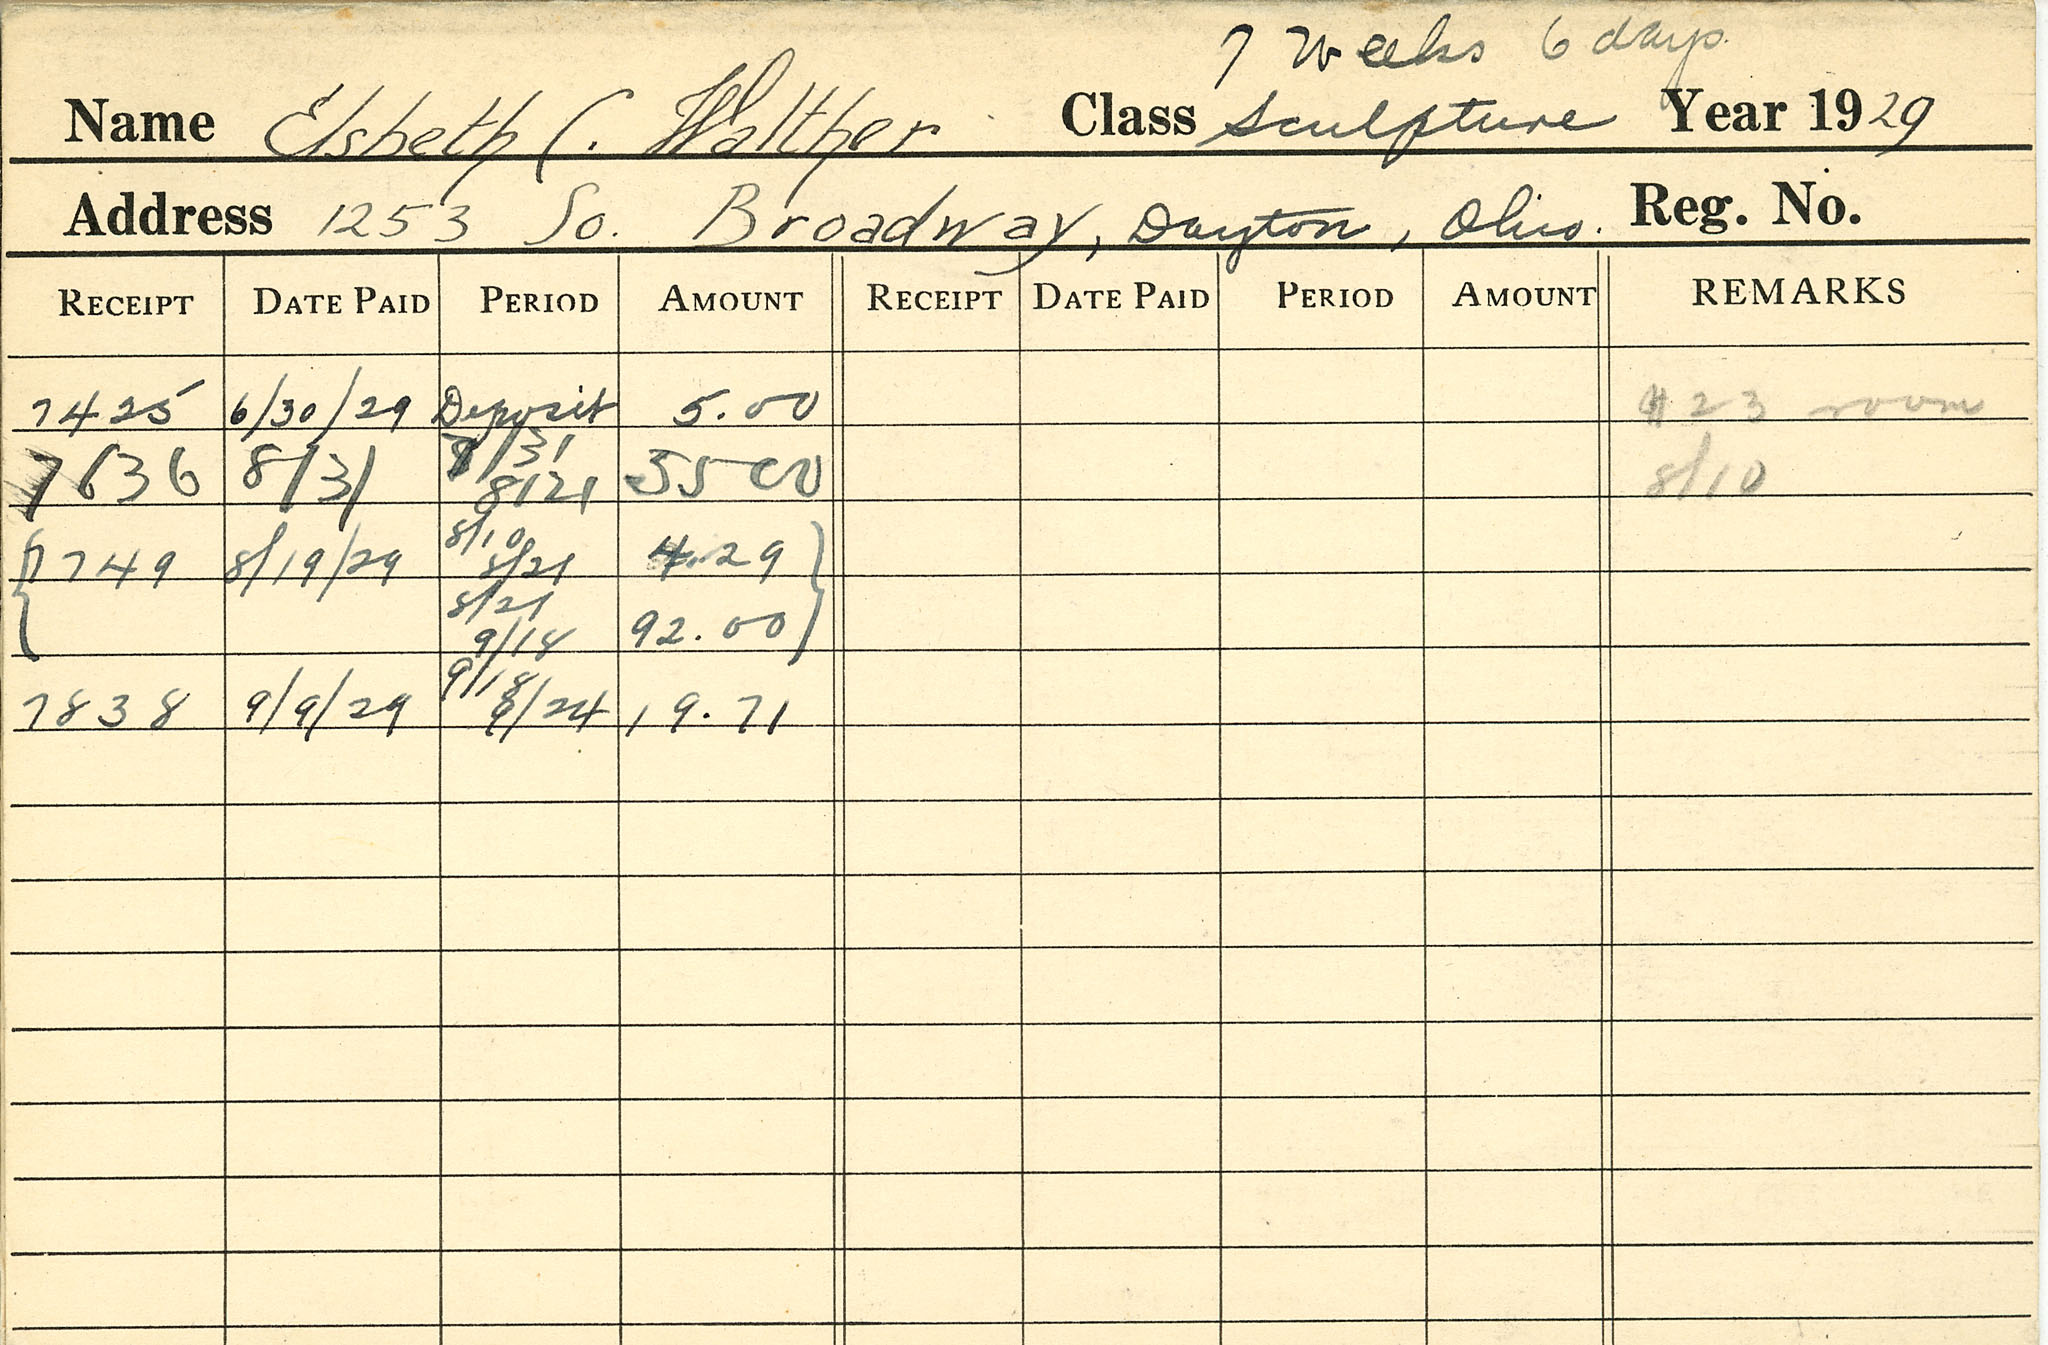 7 weeks 6 days.
Name Elsbeth C. Walther Class Sculpture Year 1929
Address 1253 So. Broadway, Dayton, Ohio. Reg. No.
RECEIPT DATE PAID PERIOD AMOUNT RECEIPT DATE PAID PERIOD AMOUNT REMARKS
7425 6/30/29 Deposit 5.00 #23 room
7/31
7636 8/31 8/21 55 00 8/10
8/10
7749 8/19/29 8/21 4.29
8/21
9/18 92.00
9/18
7838 9/9/29 9/24 19.71